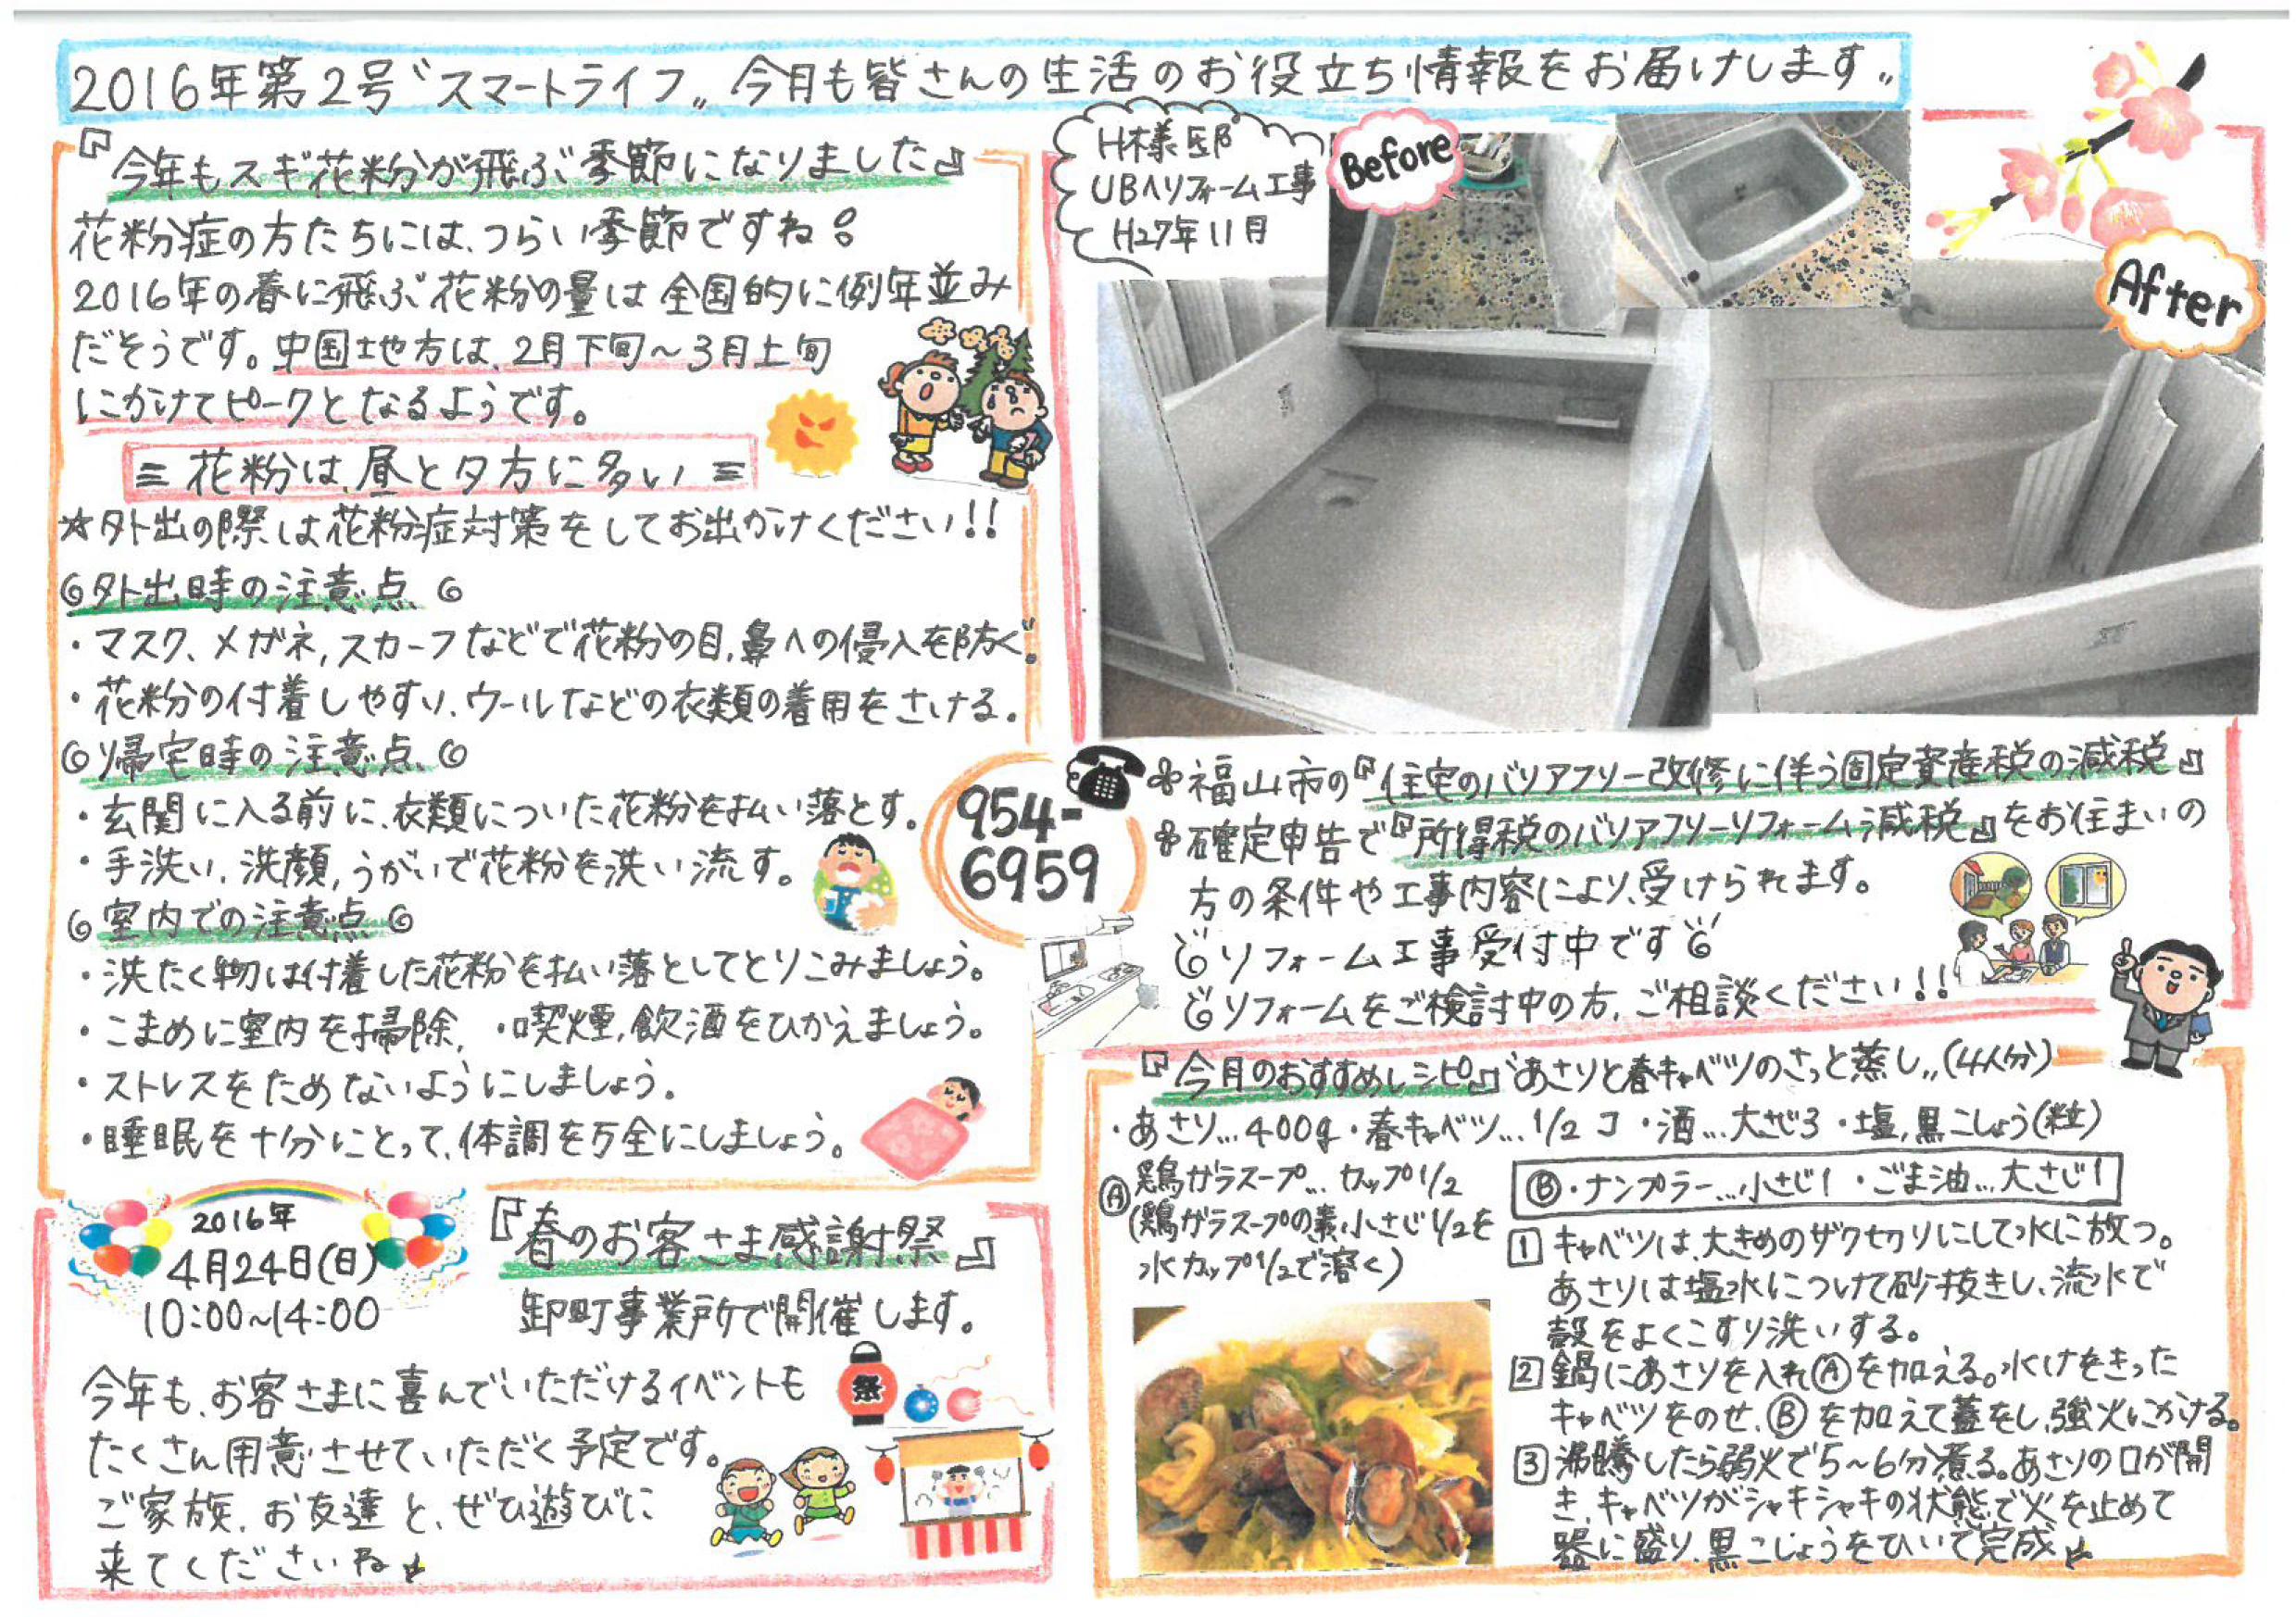 2016年第2号〝スマートライフ〟今月も皆さんの生活のお役立ち情報をお届けします〟
『今年もスギ花粉が飛ぶ季節になりました』
花粉症の方たちには、つらい季節ですね。
2016年の春に飛ぶ花粉の量は全国的に例年並み
だそうです。中国地方は、2月下旬～3月上旬
にかけてピークとなるようです。
花粉は、昼と夕方に多い
☆外出の際は花粉症対策をしてお出かけください!!
◎外出時の注意点◎
・マスク、メガネ、スカーフなどで花粉の目、鼻への侵入を防ぐ。
・花粉の付着しやすい、ウールなどの衣類の着用をさける。
◎帰宅時の注意点◎
・玄関に入る前に、衣類についた花粉を払い落とす。
・手洗い、洗顔、うがいで花粉を洗い流す。
◎室内での注意点◎
・洗たく物は付着した花粉を払い落としてとりこみましょう。
・こまめに室内を掃除、・喫煙、飲酒をひかえましょう。
・ストレスをためないようにしましょう。
・睡眠を十分にとって、体調を万全にしましょう。
2016年
4月24日(日)
10:00～14:00
『春のお客さま感謝祭』
卸町事業所で開催します。
今年も、お客さまに喜んでいただけるイベントも
たくさん用意させていただく予定です。
ご家族、お友達と、ぜひ遊びに
来てくださいね
祭
H様邸
UBへリフォーム工事
H27年11月
Before
After
954-
6959
福山市の『住宅のバリアフリー改修に伴う固定資産税の減税』
確定申告で『所得税のバリアフリーリフォーム減税』をお住まいの
方の条件や工事内容により、受けられます。
リフォーム工事受付中です
リフォームをご検討中の方、ご相談ください!!
『今月のおすすめレシピ』〝あさりと春キャベツのさっと蒸し〟(4人分)
・あさり…400g・春キャベツ…1/2コ・酒…大さじ3・塩、黒こしょう(粒)
Ⓐ鶏ガラスープ…カップ1/2
(鶏ガラスープの素小さじ1/2を
水カップ1/2で溶く)
Ⓑ・ナンプラー…小さじ1・ごま油…大さじ1
1 キャベツは、大きめのザク切りにして水に放つ。
あさりは塩水につけて砂抜きし、流水で
殻をよくこすり洗いする。
2 鍋にあさりを入れⒶを加える。水けをきった
キャベツをのせ、Ⓑを加えて蓋をし、強火にかける。
3 沸騰したら弱火で5～6分煮る。あさりの口が開
き、キャベツがシャキシャキの状態で火を止めて
器に盛り、黒こしょうをひいて完成